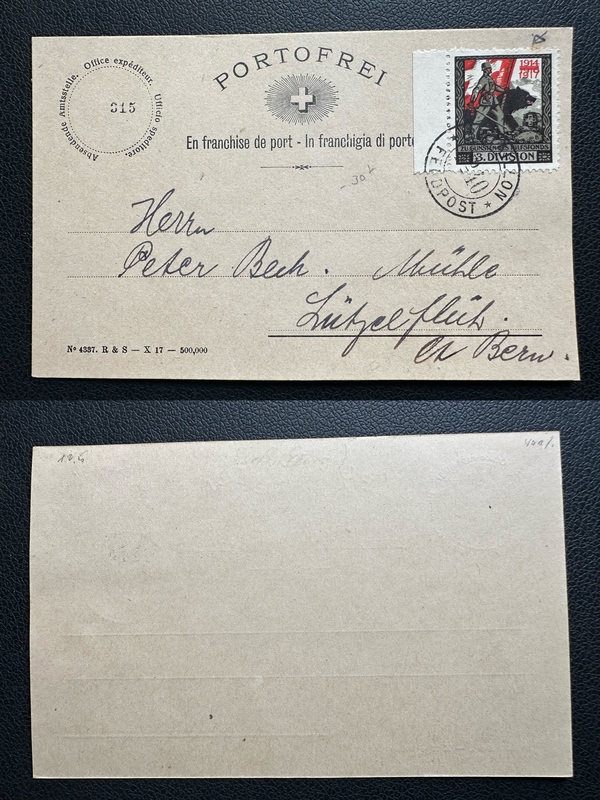 Absendende Amtsstelle. Office expéditeur. Ufficio speditore.
315
PORTOFREI
En franchise de port - In franchigia di porto
1914
1917
ZU GUNSTEN DES HILFSFONDS
3. DIVISION
FELDPOST
-30+
Herrn
Peter Bech. Mühle
Lützelflüh.
Ct Bern.
Nº 4337. R & S — X 17 — 500,000